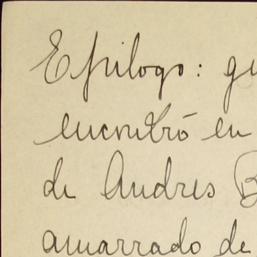 Epílogo: gu
encontró en
de Andres B
amarrado de